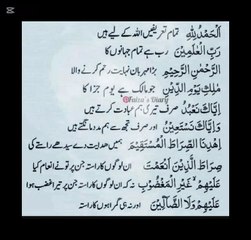 اَلْحَمْدُ لِلّٰهِ تمام تعریفیں اللہ کے لیے ہیں
رَبِّ الْعٰلَمِيْنَ رب ہے تمام جہانوں کا
الرَّحْمٰنِ الرَّحِيْمِ بڑا مہربان نہایت رحم کرنے والا
مٰلِكِ يَوْمِ الدِّيْنِ جو مالک ہے یوم جزا کا
@Faiza's Diary
اِيَّاكَ نَعْبُدُ صرف تیری ہم عبادت کرتے ہیں
وَاِيَّاكَ نَسْتَعِيْنُ اور صرف تجھ سے ہم مدد مانگتے ہیں
اِهْدِنَا الصِّرَاطَ الْمُسْتَقِيْمَ ہمیں ھدایت دے سیدھے راستے کی
صِرَاطَ الَّذِيْنَ اَنْعَمْتَ ان لوگوں کا راستہ جن پر تو نے انعام کیا
عَلَيْهِمْ غَيْرِ الْمَغْضُوْبِ نہ کہ ان لوگوں کا راستہ جن پر تیرا غضب ہوا
عَلَيْهِمْ وَلَا الضَّآلِّيْنَ اور نہ ہی گمراہوں کا راستہ